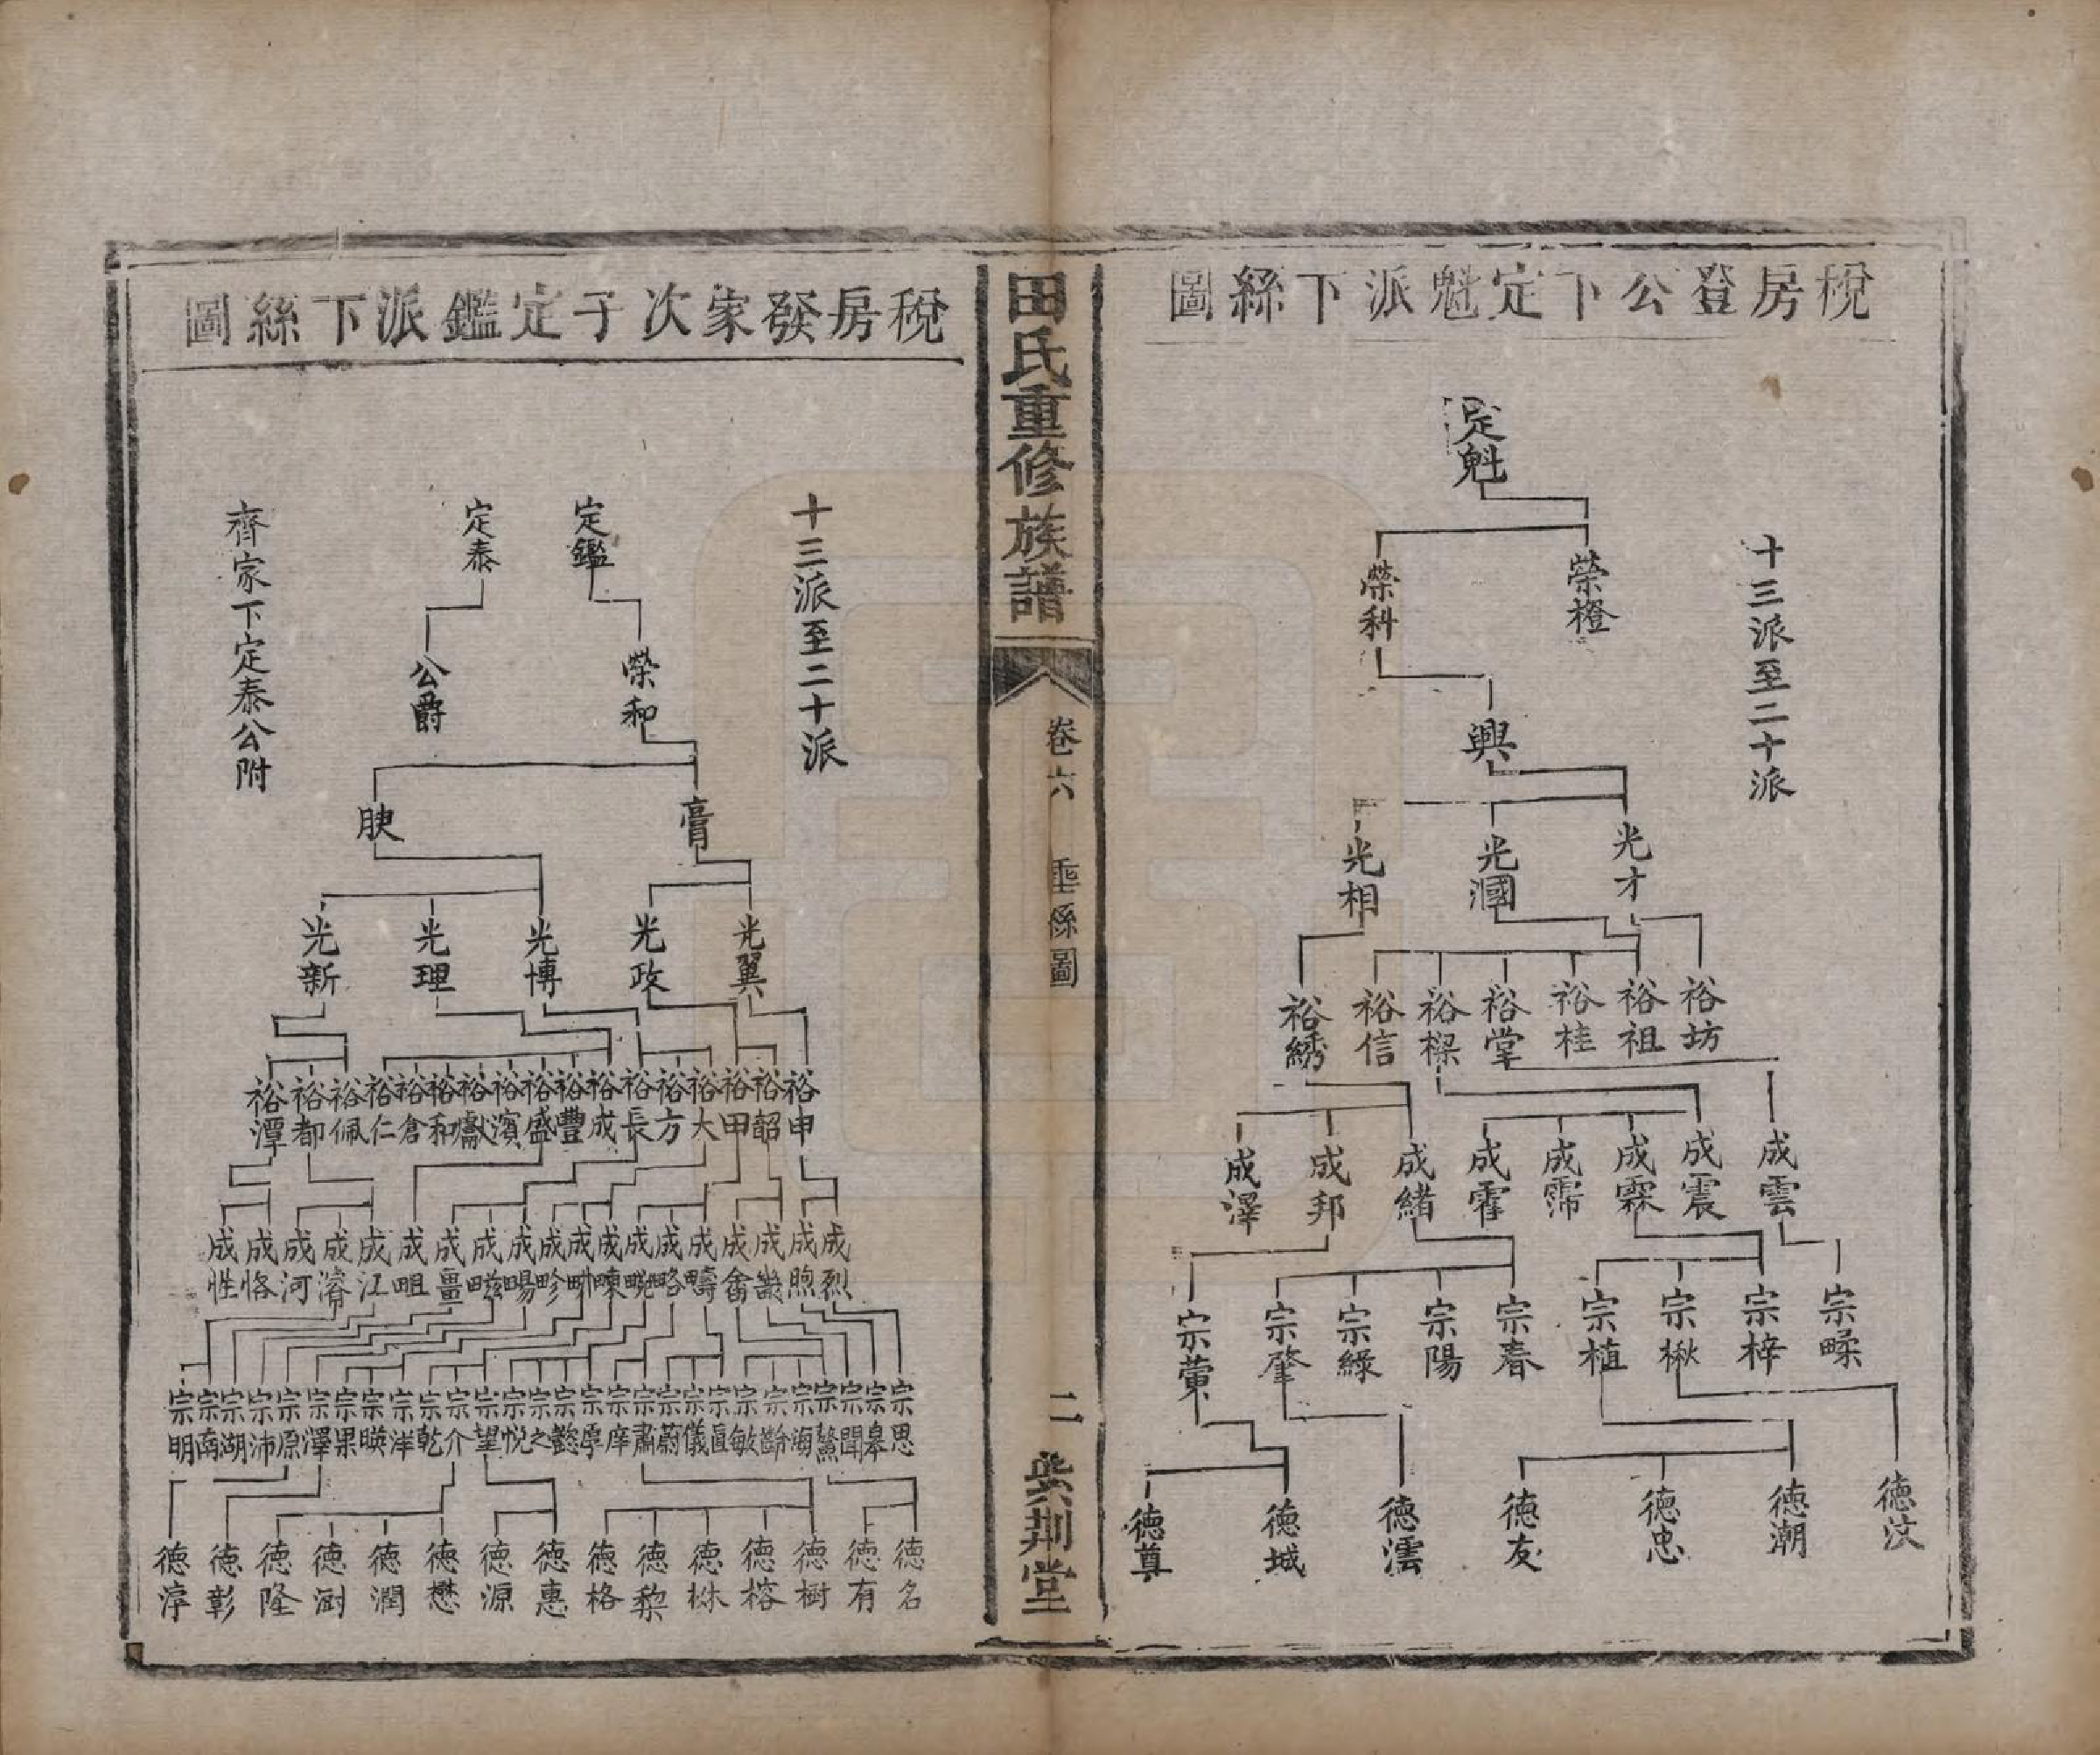 稅房登公下定魁派下絲圖
十三派至二十派
定魁
榮橙 榮科
興
光才 光漍 光相
裕坊 裕祖 裕桂 裕堂 裕樑 裕信 裕綉
成雲 成震 成霖 成霈 成霍 成緒 成邦 成澤
宗畴 宗梓 宗楸 宗植 宗春 宗陽 宗綠 宗肇 宗蕫
德汶 德潮 德忠 德友 德澐 德城 德尊
田氏重修族譜
卷六 垂絲圖
二 紫荆堂
稅房發家次子定鑑派下絲圖
十三派至二十派
定鑑 定泰
齊家下定泰公附
榮和 公爵
膏 腴
光翼 光政 光博 光理 光新
裕申 裕韶 裕甲 裕大 裕方 裕長 裕成 裕豐 裕盛 裕濱 裕獻 裕和 裕倉 裕仁 裕佩 裕都 裕潭
成烈 成煦 成 成畬 成疇 成略 成畹 成 成 成畛 成暘 成 成畺 成 成江 成濬 成河 成恪 成性
宗思 宗皋 宗聞 宗鰲 宗海 宗 宗敏 宗 宗儀 宗蔚 宗肅 宗庠 宗厚 宗懿 宗之 宗悅 宗望 宗介 宗乾 宗洋 宗暎 宗果 宗澤 宗原 宗沛 宗湖 宗南 宗明
德名 德有 德樹 德榕 德株 德黎 德格 德惠 德源 德懋 德潤 德澍 德隆 德彰 德淳